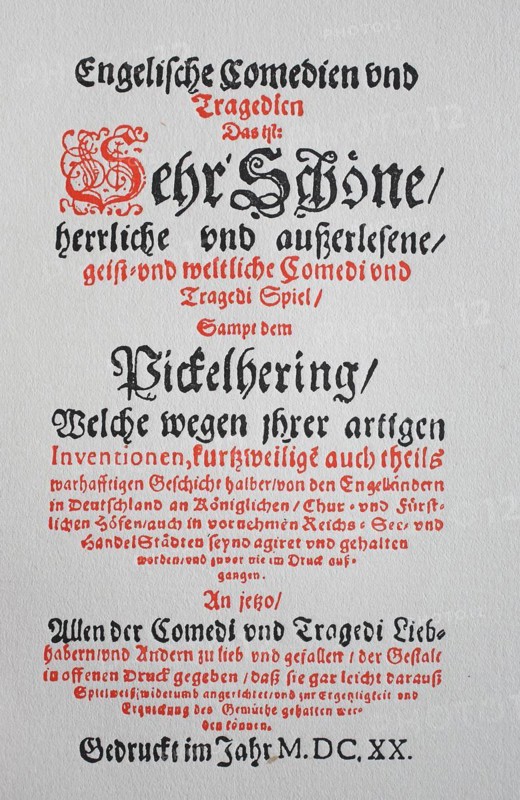 Engelische Comedien vnd
Tragedien
Das ist:
Sehr Schöne/
herrliche vnd außerlesene/
geist- vnd weltliche Comedi vnd
Tragedi Spiel/
Sampt dem
Pickelhering/
Welche wegen jhrer artigen
Inventionen, kurtzweiligē auch theils
warhafftigen Geschicht halber/von den Engelländern
in Deutschland an Königlichen/ Chur- vnd Fürst-
lichen Höfen/auch in vornehmen Reichs- See- vnd
HandelStädten seynd agiret vnd gehalten
worden/vnd zuvor nie im Druck auß-
gangen.
An jetzo/
Allen der Comedi vnd Tragedi Lieb-
habern/vnd Andern zu lieb vnd gefallen/ der Gestalt
in offenen Druck gegeben/daß sie gar leicht darauß
Spielweiß widerumb angerichtet/vnd zur Ergetzligkeit vnd
Erquickung des Gemüths gehalten wer-
den können.
Gedruckt im Jahr M. DC. XX.